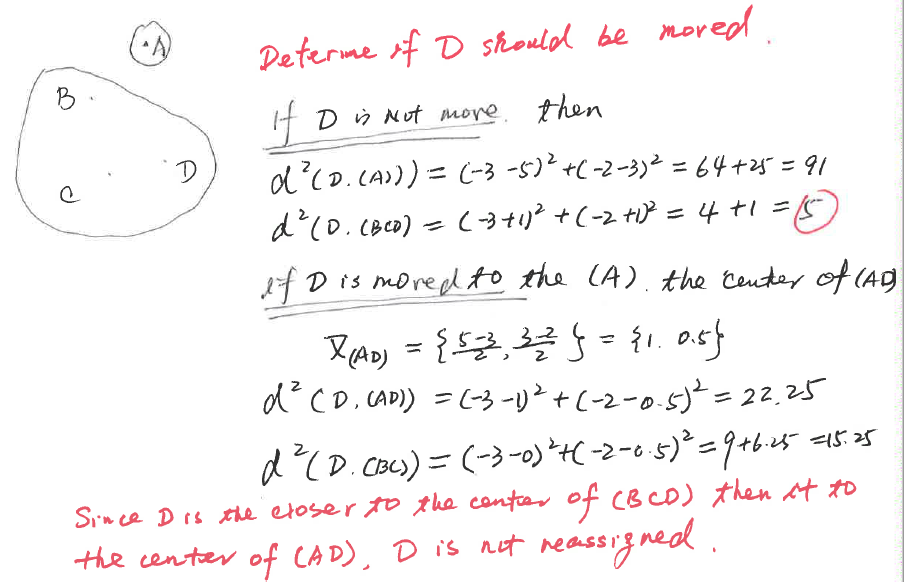 A
B
C
D
Deterime if D should be moved.
If D is not move. then
d²(D.(A))) = (-3-5)² + (-2-3)² = 64+25 = 91
d²(D.(BCD) = (-3+1)² + (-2+1)² = 4+1 = 5
if D is moved to the (A). the center of (AD)
X̄(AD) = {5-3/2, 3-2/2} = {1. 0.5}
d²(D,(AD)) = (-3-1)² + (-2-0.5)² = 22.25
d²(D.(BC)) = (-3-0)² + (-2-0.5)² = 9+6.25 = 15.25
Since D is the closer to the center of (BCD) then it to
the center of (AD), D is not reassigned.